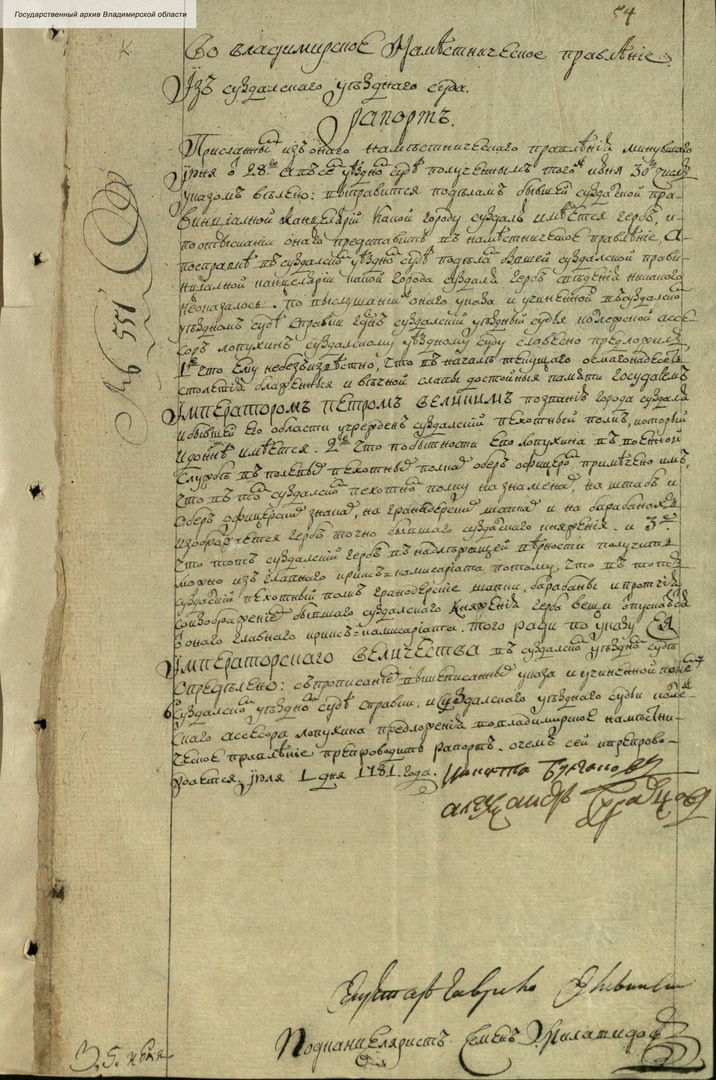 Государственный архив Владимирской области
54
Во владимирское Намѣстническое правлѣние
Изъ суздалского уѣзднаго суда.
Рапортъ.
Присланным изъ онаго намѣстнического правлѣния минувшаго
июня 28 уѣздно судѣ полученнымъ того июня 30 числа
указомъ велено: выправится подѣламъ бывшей суздалской про
винциалной Канцелярии какой городу суздалю имѣется гербъ, и
поотысканиі онаго представить въ намѣстническое правлѣние, А
посправке въ суздалском уѣздно судѣ подѣлам бывшей суздалской прови
нциалной канцелярии какой города суздаля гербъ сведения никакого
неоказалось. По выслушании онаго указа и учиненной въ суздалском
уѣздномъ судѣ справки суздалский уѣздный судья колежской асе
соръ лопухинъ суздалскому уѣздному суду словесно предложил,
1е что Ему небезызвѣстно, что въ началѣ текущаго осмагонадесять
столетия блаженныя и вѣчной славы достойныя памяти Государемъ
Императоромъ Петромъ Великимъ познанию города суздаля
и бывшей Его области учрежденъ суздалский пехотный полкъ, который
и донынѣ имѣется. 2е Что побытности Его лопухина въ военной
службѣ въ полевыхъ пехотныхъ полкахъ оберъ офицером примѣчено имъ,
что въ том суздалском пехотном полку на знаменах, на штабъ и
оберъ офицерских знаках, на гранодерских шапках и на барабанах
изображается гербъ точно бывшаго суздалского княжения. и 3е
что тотъ суздалский гербъ въ надлежащей верности получить
можно из главнаго кригсъ=комисариата потому, что въ тотъ
суздалский пехотный полкъ гранодерские шапки, барабаны и протчия
соизображениѣ бывшаго суздалского Княжения герба вещи отпускаются
с онаго главнаго кригсъ=комисариата. Того ради по указу ЕЯ
Императорского величества въ суздалском уѣздном судѣ
Опредѣлено: с прописаниѣ вышеписанных указа и учиненной
в суздалском уѣздно судѣ справки, и суздалского уѣзднаго судьи колеж
скаго асесора лопухина предложения во владимирское намѣстни
ческое правлѣние препроводить рапортъ. очемъ сей и препрово
ждается. июля 1 дня 1781. года.
александръ
№ 551
Подканцеляристъ Семенъ Филатов